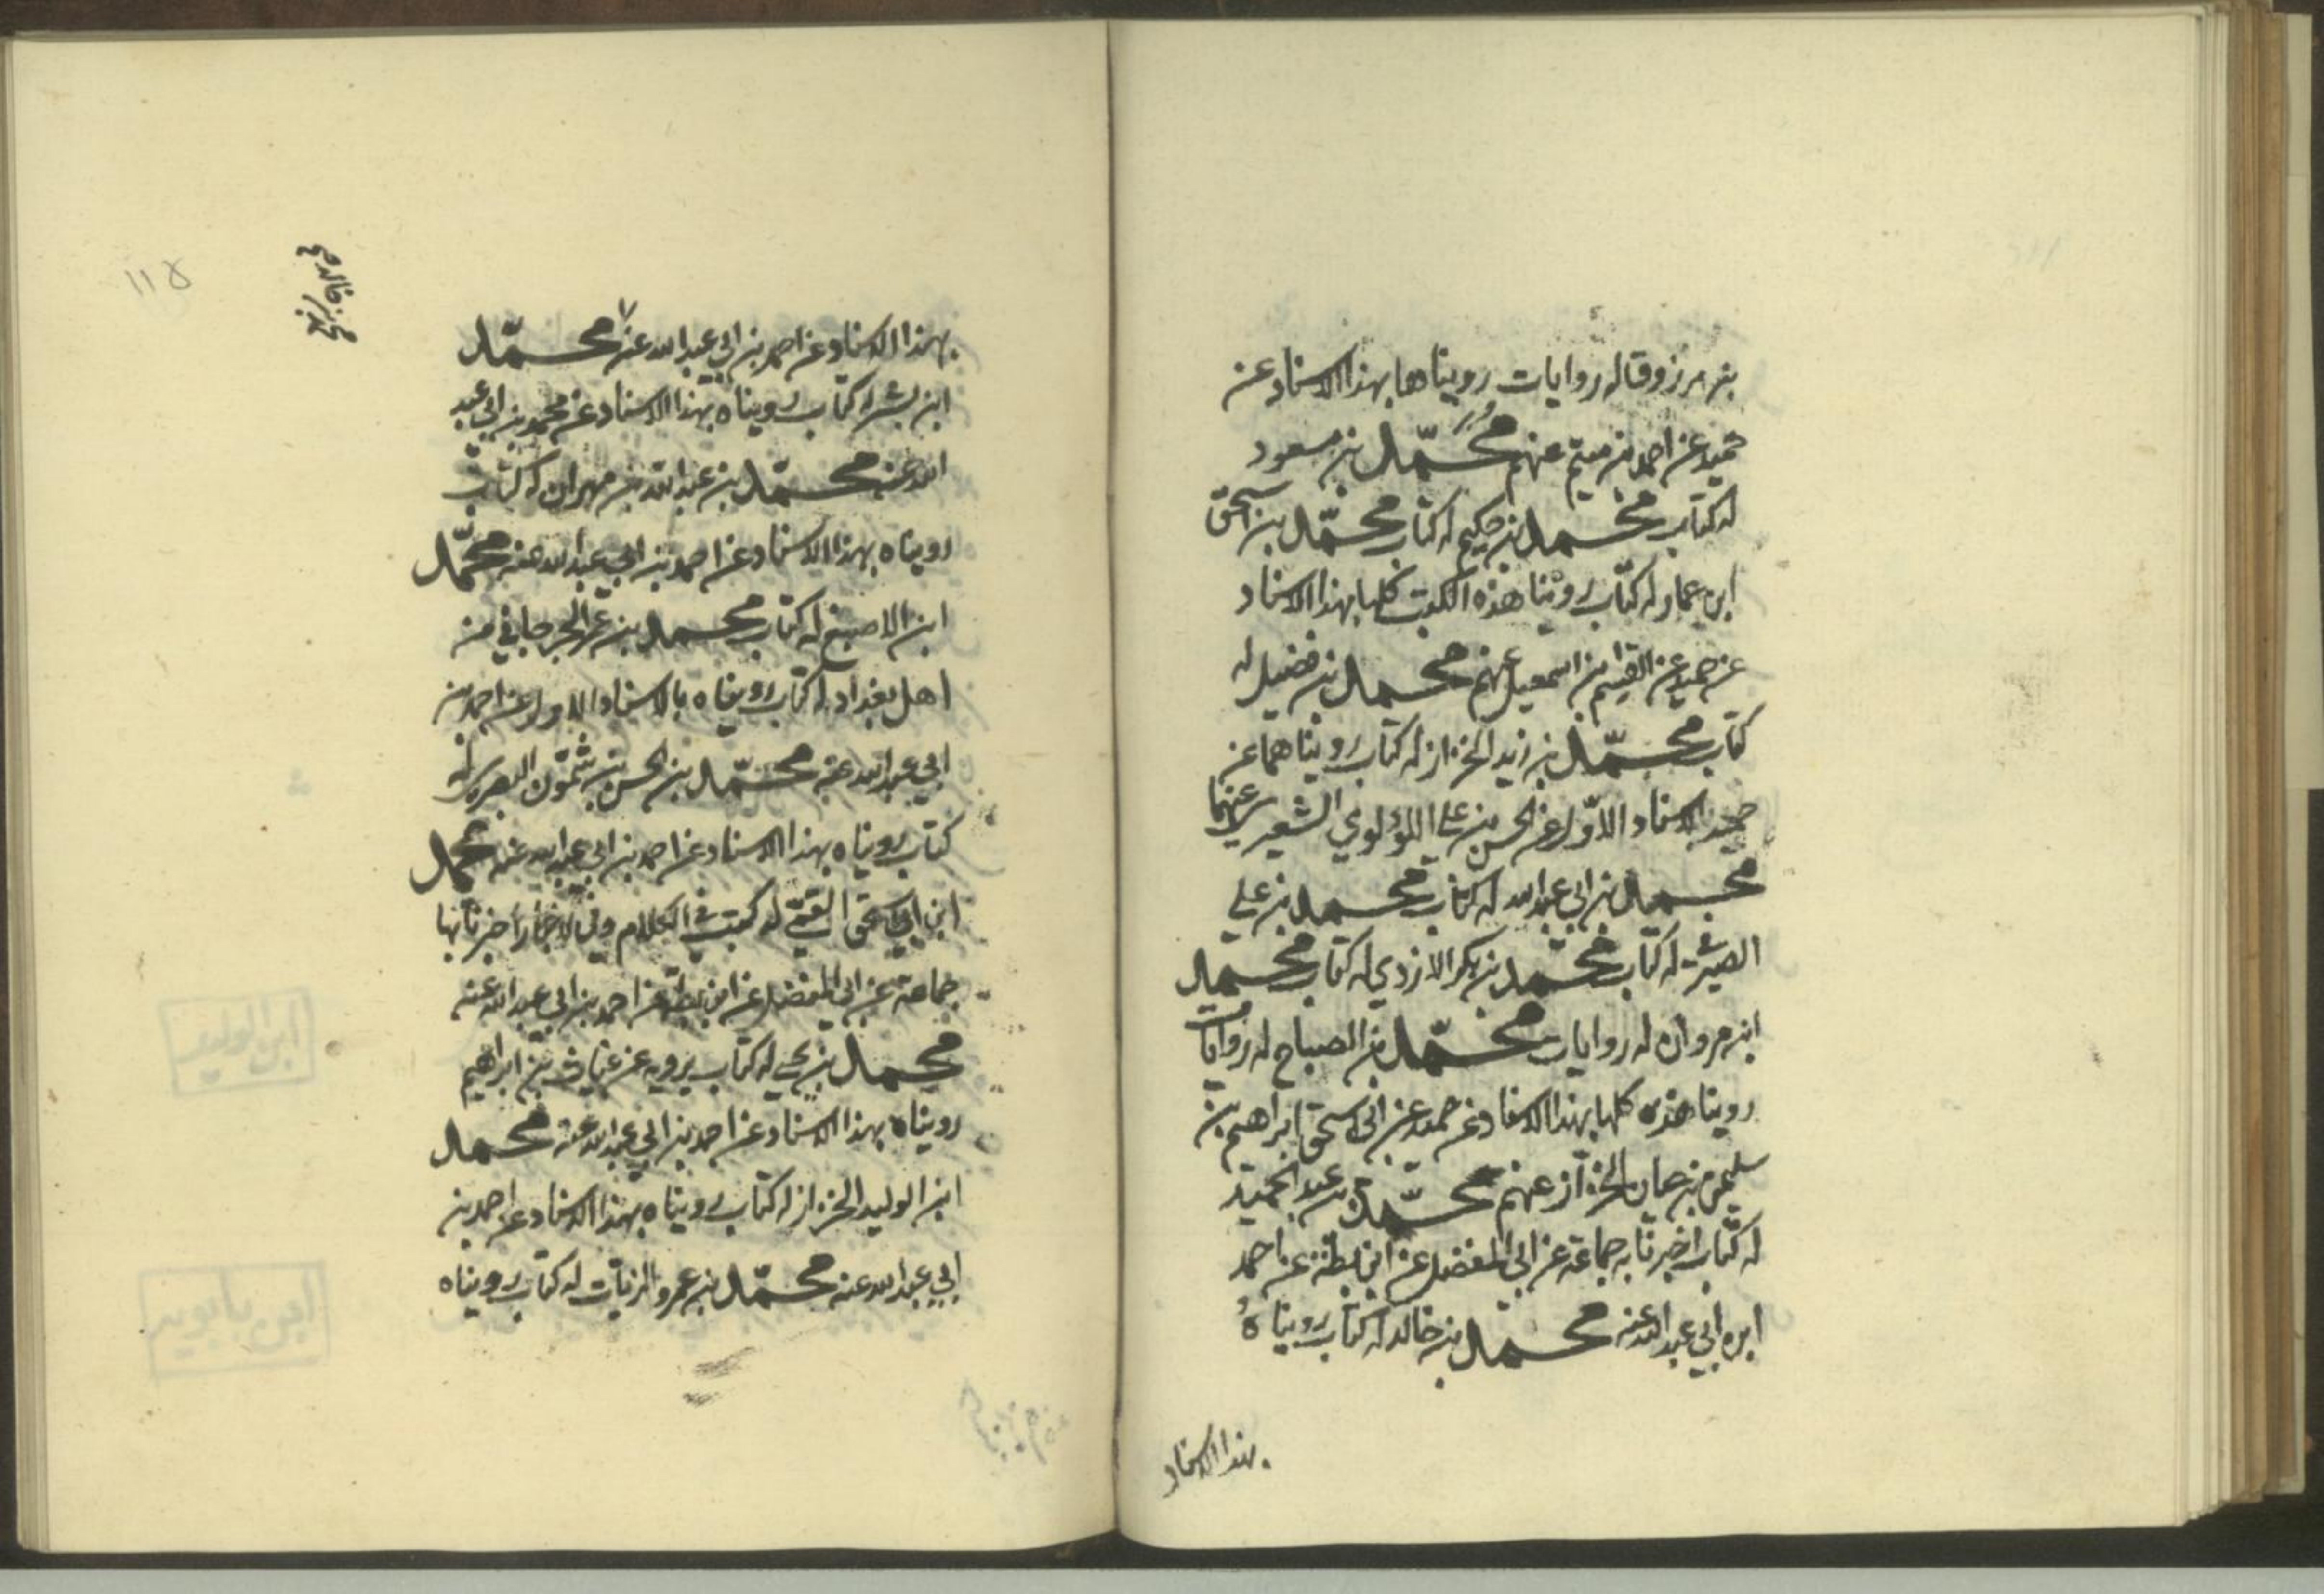 بن مرزوق له روايات رويناها بهذا الاسناد عن
حميد عن احمد بن ميثم عنهم محمّد بن مسعود
له كتاب محمد بن حكيم له كتاب محمّد بن اسحق
ابن عمار له كتاب روينا هذه الكتب كلها بهذا الاسناد
عن حميد عن القسم بن اسمعيل عنهم محمد بن فضيل له
كتاب محمّد بن زيد الخزاز له كتاب رويناهما عن
حميد بالاسناد الاوّل عن الحسن بن علي اللؤلوي الشعيري عنهما
محمد بن ابي عبد الله له كتاب محمد بن علي
الصيرفي له كتاب محمّد بن بكر الازدي له كتاب محمد
ابن مروان له روايات محمّد بن الصباح له روايات
روينا هذه كلها بهذا الاسناد عن حميد عن ابي اسحق ابراهيم بن
سليمن بن حيان الخزاز عنهم محمّد بن عبد الحميد
له كتاب اخبرنا به جماعة عن ابي المفضل عن ابن بطة عن احمد
ابن ابي عبد الله عنه محمد بن خالد له كتاب رويناه
بهذا الاسناد
١١٥
بهذا الاسناد عن احمد بن ابي عبد الله عنه محمّد
ابن بشر له كتاب رويناه بهذا الاسناد عن محمد بن ابي عبد
الله عنه محمّد بن عبد الله بن مهران له كتاب
رويناه بهذا الاسناد عن احمد بن ابي عبد الله عنه محمّد
ابن الاصبغ له كتاب محمد بن عمر الجرجاني من
اهل بغداد له كتاب رويناه بالاسناد الاول عن احمد بن
ابي عبد الله عنه محمّد بن الحسن بن شمّون البصري له
كتاب رويناه بهذا الاسناد عن احمد بن ابي عبد الله عنه محمد
ابن ابي اسحق القمّي له كتب في الكلام وفي الاخبار اخبرنا بها
جماعة عن ابي المفضل عن ابن بطة عن احمد بن ابي عبد الله عنه
محمد بن يحيى له كتاب يرويه عن غياث بن ابراهيم
رويناه بهذا الاسناد عن احمد بن ابي عبد الله عنه محمد
ابن الوليد الخزاز له كتاب رويناه بهذا الاسناد عن احمد بن
ابي عبد الله عنه محمّد بن عمرو الزيّات له كتاب رويناه
ابن الوليد
ابن بابويه